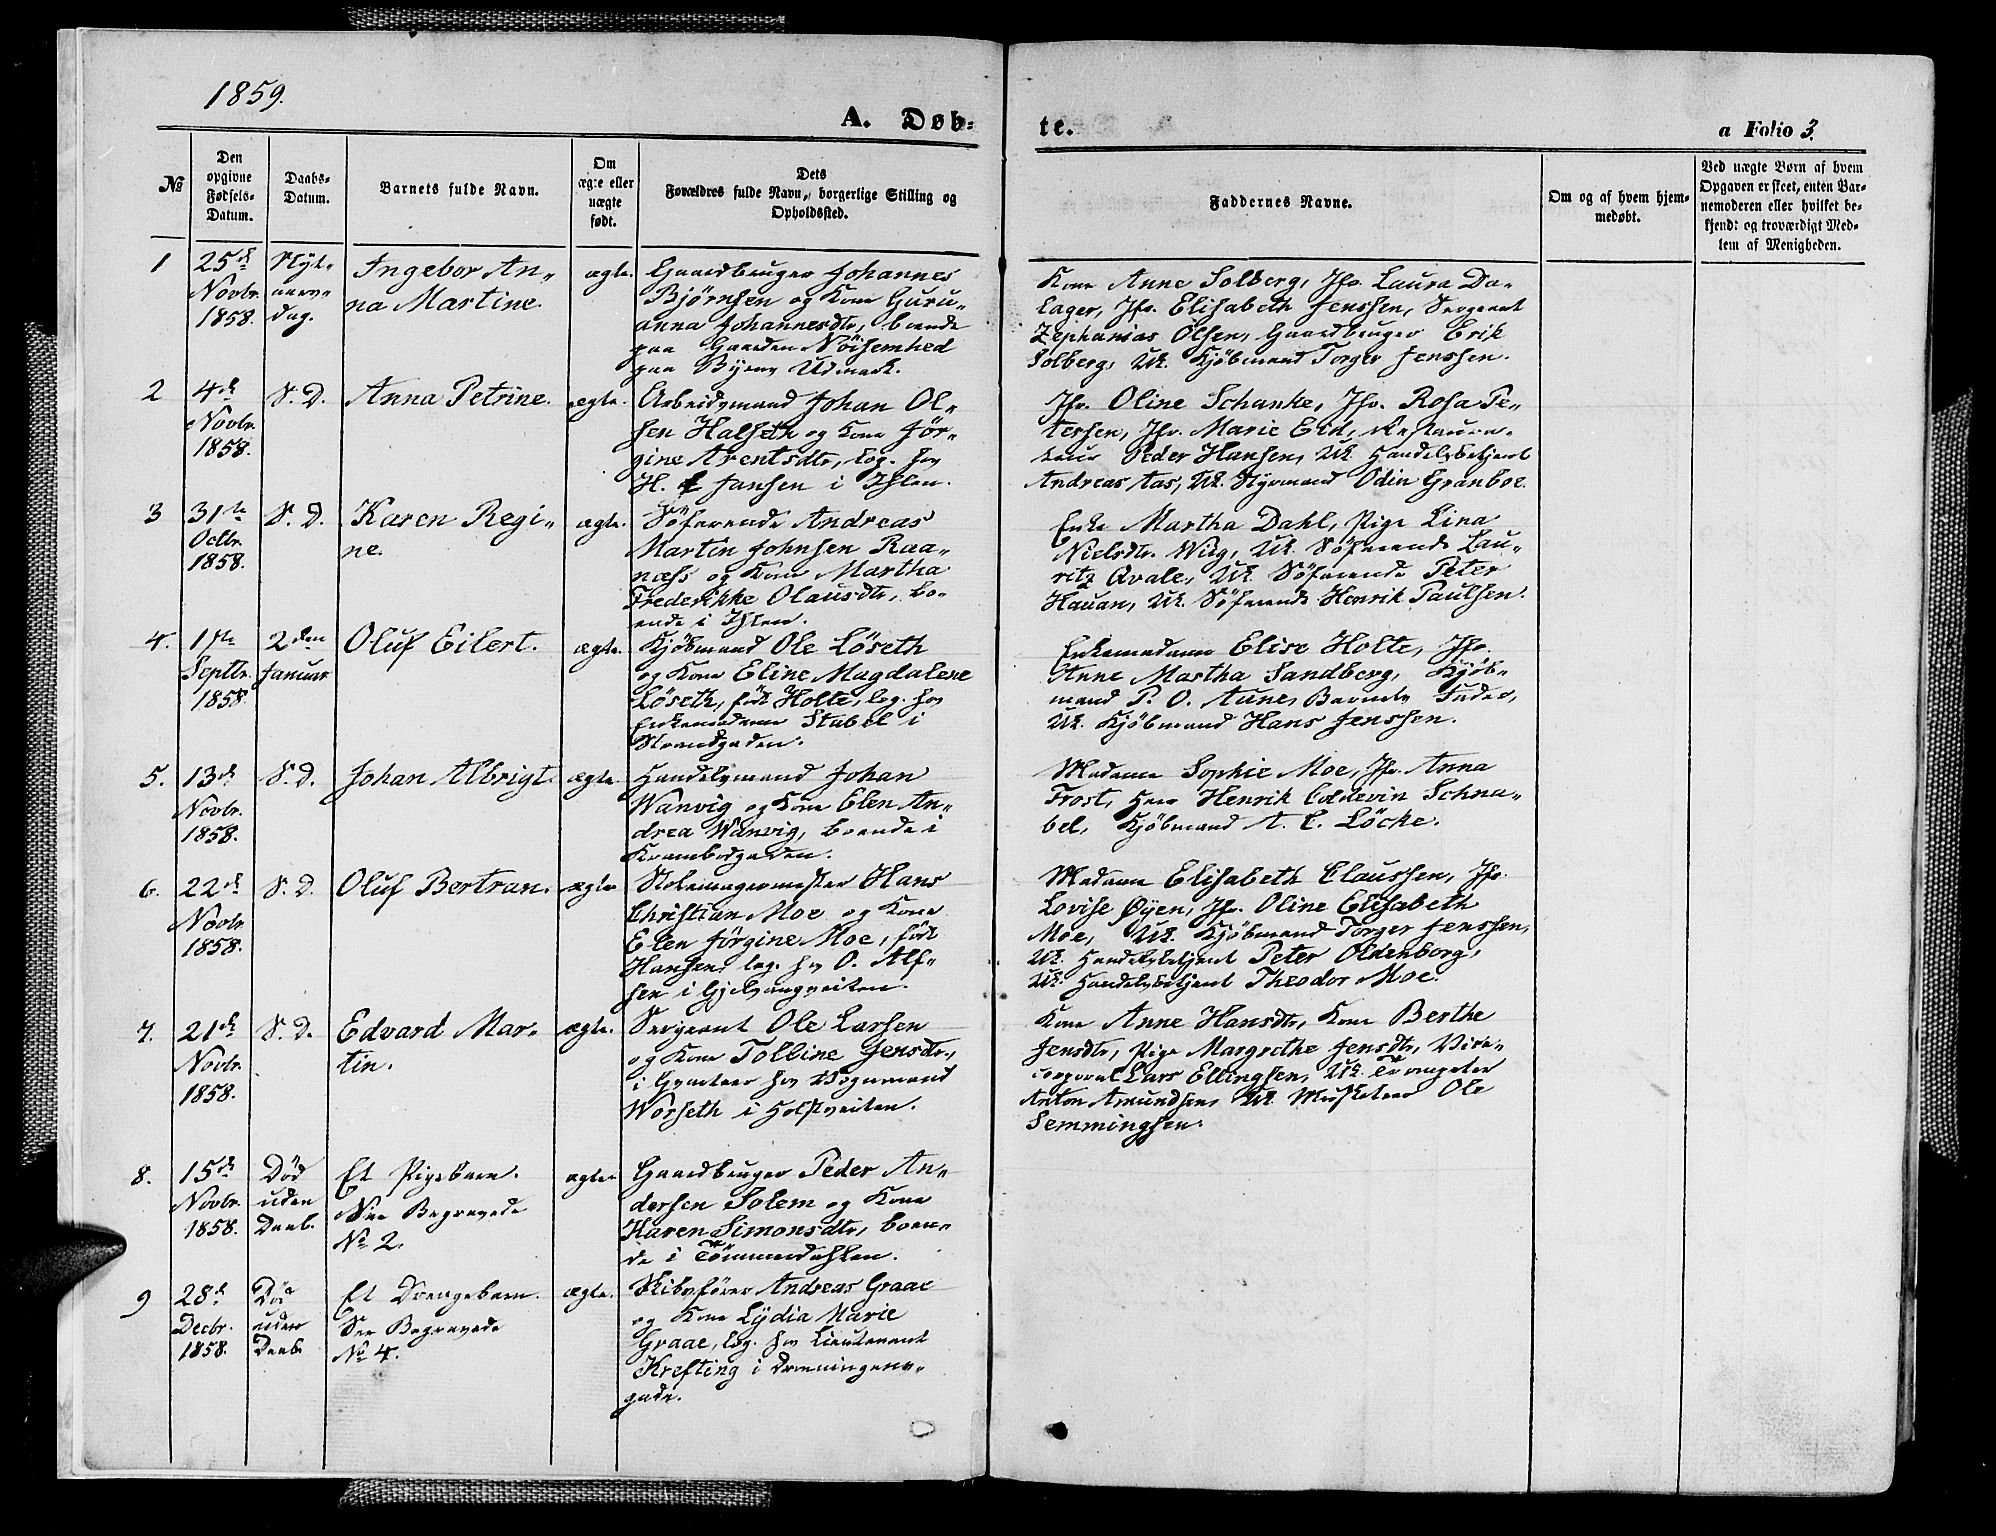 1859.
A. Døb-
te.
a Folio 3.
№
Den opgivne Fødsels-Datum.
Daabs-Datum.
Barnets fulde Navn.
Om ægte eller uægte født.
Dets
Forældres fulde Navn, borgerlige Stilling og
Opholdssted.
Faddernes Navne.
Om og af hvem hjem-
medøbt.
Ved uægte Børn af hvem
Opgaven er skeet, enten Bar-
nemoderen eller hvilket be-
kjendt og troværdigt Med-
lem af Menigheden.
1
25de
Novbr.
1858.
Nyt-
aars-
dag.
Ingebor An-
na Martine.
ægte.
Gaardbruger Johannes
Bjørnsen og Kone Guru-
anna Johannesdtr, boende
paa Gaarden Nöisomhed
paa Byens Udmark.
Kone Anne Solberg, Jfr. Laura Da-
lager, Jfr. Elisabeth Jenssen, Sergeant
Zephanias Olsen, Gaardbruger Erik
Solberg, Uk. Kjöbmand Torger Jenssen.
2
4de
Novbr.
1858.
S. D.
Anna Petrine.
ægte.
Arbeidsmand Johan Ol-
sen Halseth og Kone Jør-
gine Arentsdtr, log. hos
H. Jansen i Ihlen.
Jfr. Oline Schanke, Jfr. Rosa Pe-
tersen, Jfr. Marie Eid, Restaura-
teur Peder Hansen, Uk. Handelsbetjent
Andreas Aas, Uk. Styrmand Odin Granboe.
3
31te
Octbr.
1858.
S. D.
Karen Regi-
ne.
ægte.
Söfarende Andreas
Martin Johnsen Raa-
næss og Kone Martha
Frederikke Olausdtr, bo-
ende i Ihlen.
Enke Martha Dahl, Pige Lina
Nielsdtr. Wiig, Uk. Söfarende Lau-
ritz Qvale, Uk. Söfarende Peter
Hauan, Uk. Söfarende Henrik Paulsen.
4.
1ste
Septbr.
1858.
2den
Januar
Oluf Eilert.
ægte.
Kjöbmand Ole Löseth
og Kone Eline Magdalene
Löseth, født Holte, log. hos
Enkemadame Stabel i
Strandgaden.
Enkemadame Elise Holte, Jfr.
Anne Martha Sandberg, Kjöb-
mand P. O. Aune, Barnets Fader,
Uk. Kjöbmand Hans Jenssen.
5.
13de
Novbr.
1858.
S. D.
Johan Albrigt.
ægte.
Handelsmand Johan
Wanvig og Kone Elen An-
drea Wanvig, boende i
Krambodgaden.
Madame Sophie Moe, Jfr. Anna
Frost, Herr Henrik Coldevin Schna-
bel, Kjöbmand A. C. Löcke.
6.
22de
Novbr.
1858.
S. D.
Oluf Bertran.
ægte.
Stolemagermester Hans
Christian Moe og Kone
Elen Jörgine Moe, født
Hansen, log. hos O. Alf-
sen i Gjelvangveiten.
Madame Elisabeth Claussen, Jfr.
Lovise Øyen, Jfr. Oline Elisabeth
Moe, Uk. Kjöbmand Torger Jenssen,
Uk. Handelsbetjent Peter Oldenborg,
Uk. Handelsbetjent Theodor Moe.
7.
21de
Novbr.
1858.
S. D.
Edvard Mar-
tin.
ægte.
Sergeant Ole Larsen
og Kone Tolline Jensdtr.,
i Qvarteer hos Vognmand
Worseth i Holstveiten.
Kone Anne Hansdtr, Kone Berthe
Jensdtr, Pige Margrethe Jensdtr, Vice-
corporal Lars Ellingsen, Uk. Trompeter
Anton Amundsen, Uk. Musketeer Ole
Semmingsen.
8.
15de
Novbr.
1858.
Död
uden
Daab.
Et Pigebarn.
See Begravede
No 2.
ægte.
Gaardbruger Peder An-
dersen Solem og Kone
Karen Simonsdtr, boen-
de i
9
28de
Decbr.
1858.
Död
uden
Daab.
Et Drengebarn.
See Begravede
No 4.
ægte.
Skibsförer Andreas Graae
og Kone Lydia Marie
Graae, log. hos Lieutenant
Krefting i Dronningens-
gade.